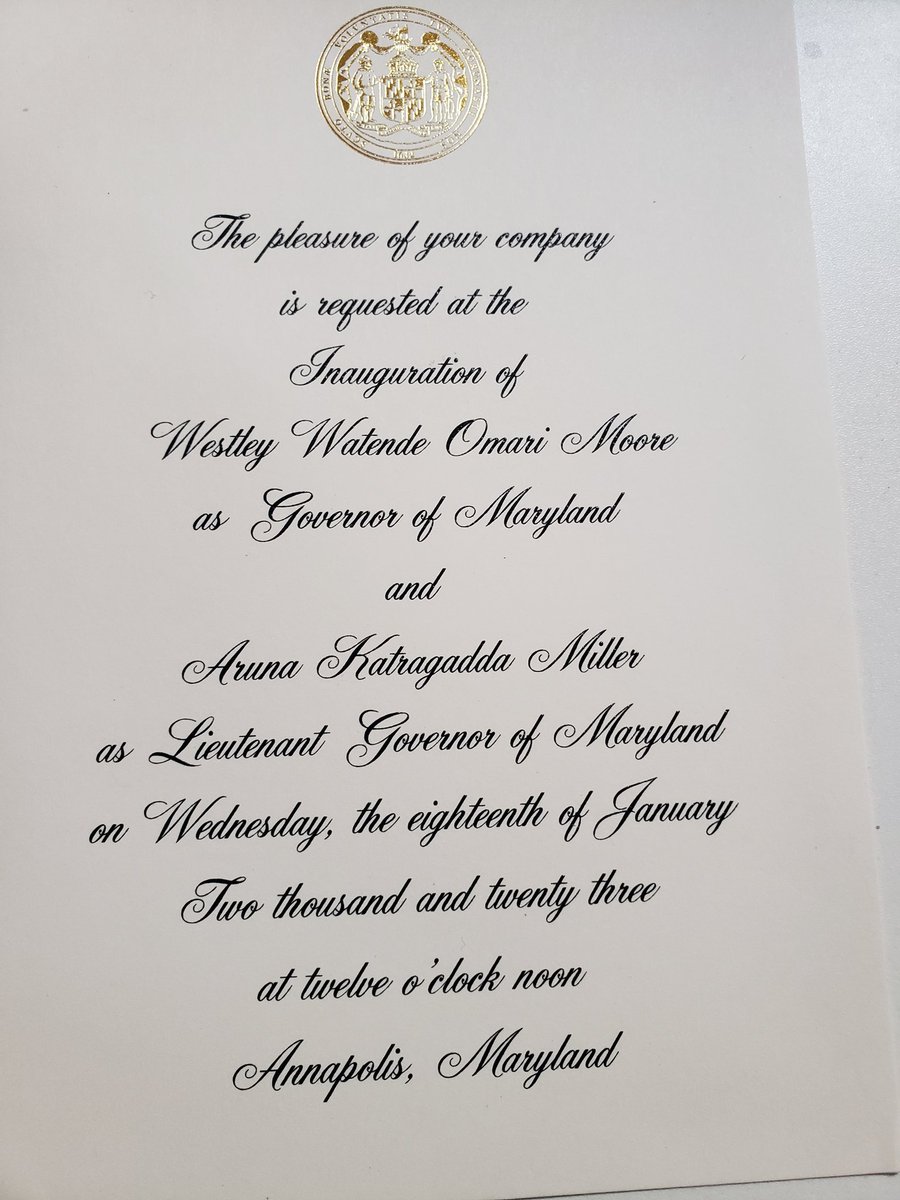 The pleasure of your company
is requested at the
Inauguration of
Westley Watende Omari Moore
as Governor of Maryland
and
Aruna Katragadda Miller
as Lieutenant Governor of Maryland
on Wednesday, the eighteenth of January
Two thousand and twenty three
at twelve o'clock noon
Annapolis, Maryland